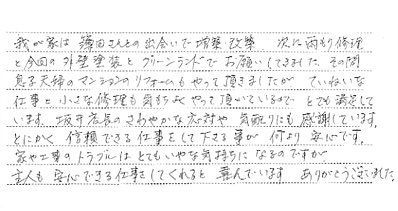 我が家は 藤田さんとの出会いで増築 改築、次に雨もり修理
と今回の外壁塗装と グリーンランドで お願いしてきました その間
息子夫婦のマンションのリフォームもやって頂きましたが ていねいな
仕事と 小さな修理も気持ちよくやって頂いているので とても満足して
います。坂井店長のさわやかな応対や 気配りにも感謝しています。
とにかく 信頼できる仕事をして下さる事が 何より 安心です。
家や工事のトラブルは とてもいやな気持ちに なるのですが
主人も 安心できる仕事をしてくれると 喜んでいます ありがとうございました。